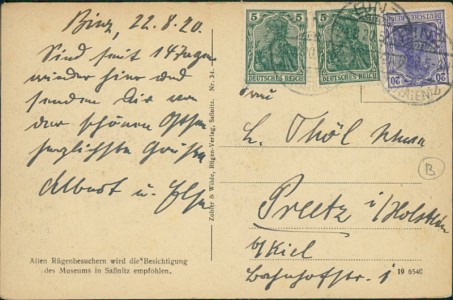 Binz, 22.8.20.
Sind seit 14 Tagen
wieder hier und
senden Dir von
der schönen Ostsee
herzlichste Grüße
Albert u. Else
Alten Rügenbesuchern wird die Besichtigung
des Museums in Saßnitz empfohlen.
Zobler & Wilde, Rügen-Verlag, Saßnitz. Nr. 34.
5 5
5 5
DEUTSCHES REICH
DEUTSCHES REICH
20 20
DEUTSCHES REICH
BINZ
(RÜGEN)
Frau
L. Thöl
Preetz i/Holstein
b/Kiel
Bahnhofstr. 1
B
19 6540